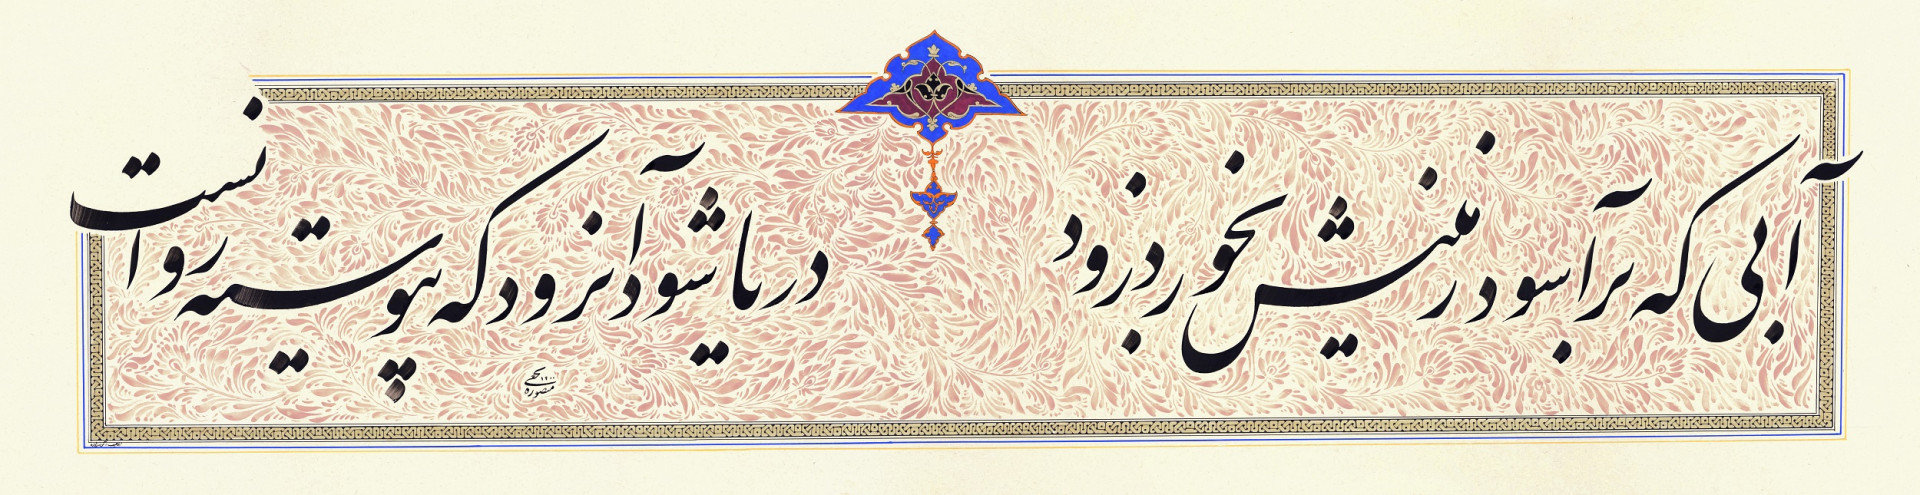 آبی که برآسود زمینش بخورد زود
دریا شود آنرود که پیوسته روانست
۱۴۰۰
منصوره